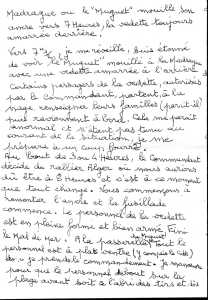 Madrague où le "Muguet" mouille son
ancre vers 7 Heures, la vedette toujours
amarrée derrière.
Vers 7h 3/4, je me réveille, suis étonné
de voir le "Muguet" mouillé à la Madrague
avec une vedette amarrée à l'arrière.
Certains passagers de la vedette, autorisés
par le Commandement, partent, à la
nage renseigner leurs familles (paraît-il)
puis reviennent à bord. Cela me paraît
anormal et n'étant pas tenu au
courant de la situation, je me
prépare à un coup fourré.
Au bout de 3 ou 4 Heures, le Commandant
décide de rallier Alger où nous aurions
dû être à 8 Heures et c'est à ce moment
que tout change. Nous commençons à
remonter l'ancre et la fusillade
commence. Le personnel de la vedette
est en pleine forme et bien armé.
le Mat de Mes. A la passerelle tout le
personnel est à plat ventre (y compris le
) je prends le commandement. Je manœuvre
pour que le personnel debout sur la
plage avant soit à l'abri des tirs et